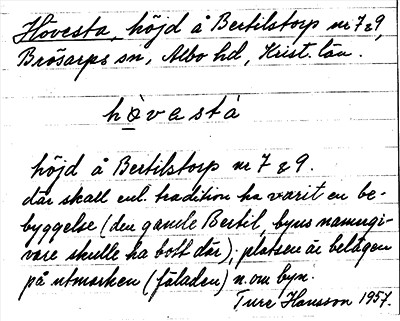 Hovesta, höjd å Bertilstorp nr 7 & 9,
Brösarps sn, Albo hd, Krist. län.
hò̱vastá
höjd å Bertilstorp nr 7 & 9.
där skall enl. tradition ha varit en be-
byggelse (den gamle Bertil, byns namngi-
vare skulle ha bott där); platsen är belägen
på utmarken (fäladen) n. om byn.
Ture Hansson 1957.